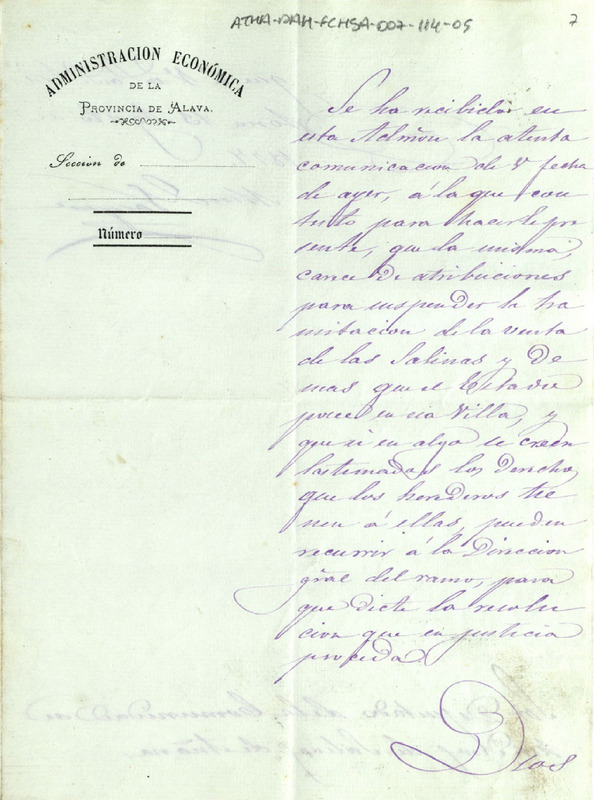 ATHA-DAH-FCHSA-007-114-05
7
ADMINISTRACION ECONÓMICA
DE LA
PROVINCIA DE ALAVA.
Seccion de
Número
Se ha recibido en
esta Admõn la atenta
comunicacion de V fecha
de ayer, á la que con
testo para hacerle pre
sente, que la misma,
carece de atribuciones
para suspender la tra
mitacion de la venta
de las Salinas y De
mas que el Estado
posee en esa Villa, y
que si en algo se creen
lastimados los derechos
que los herederos tie
nen á ellas, pueden
recurrir á la Direccion
gral del ramo, para
que dicte la resolu
cion que en justicia
proceda.
Dios